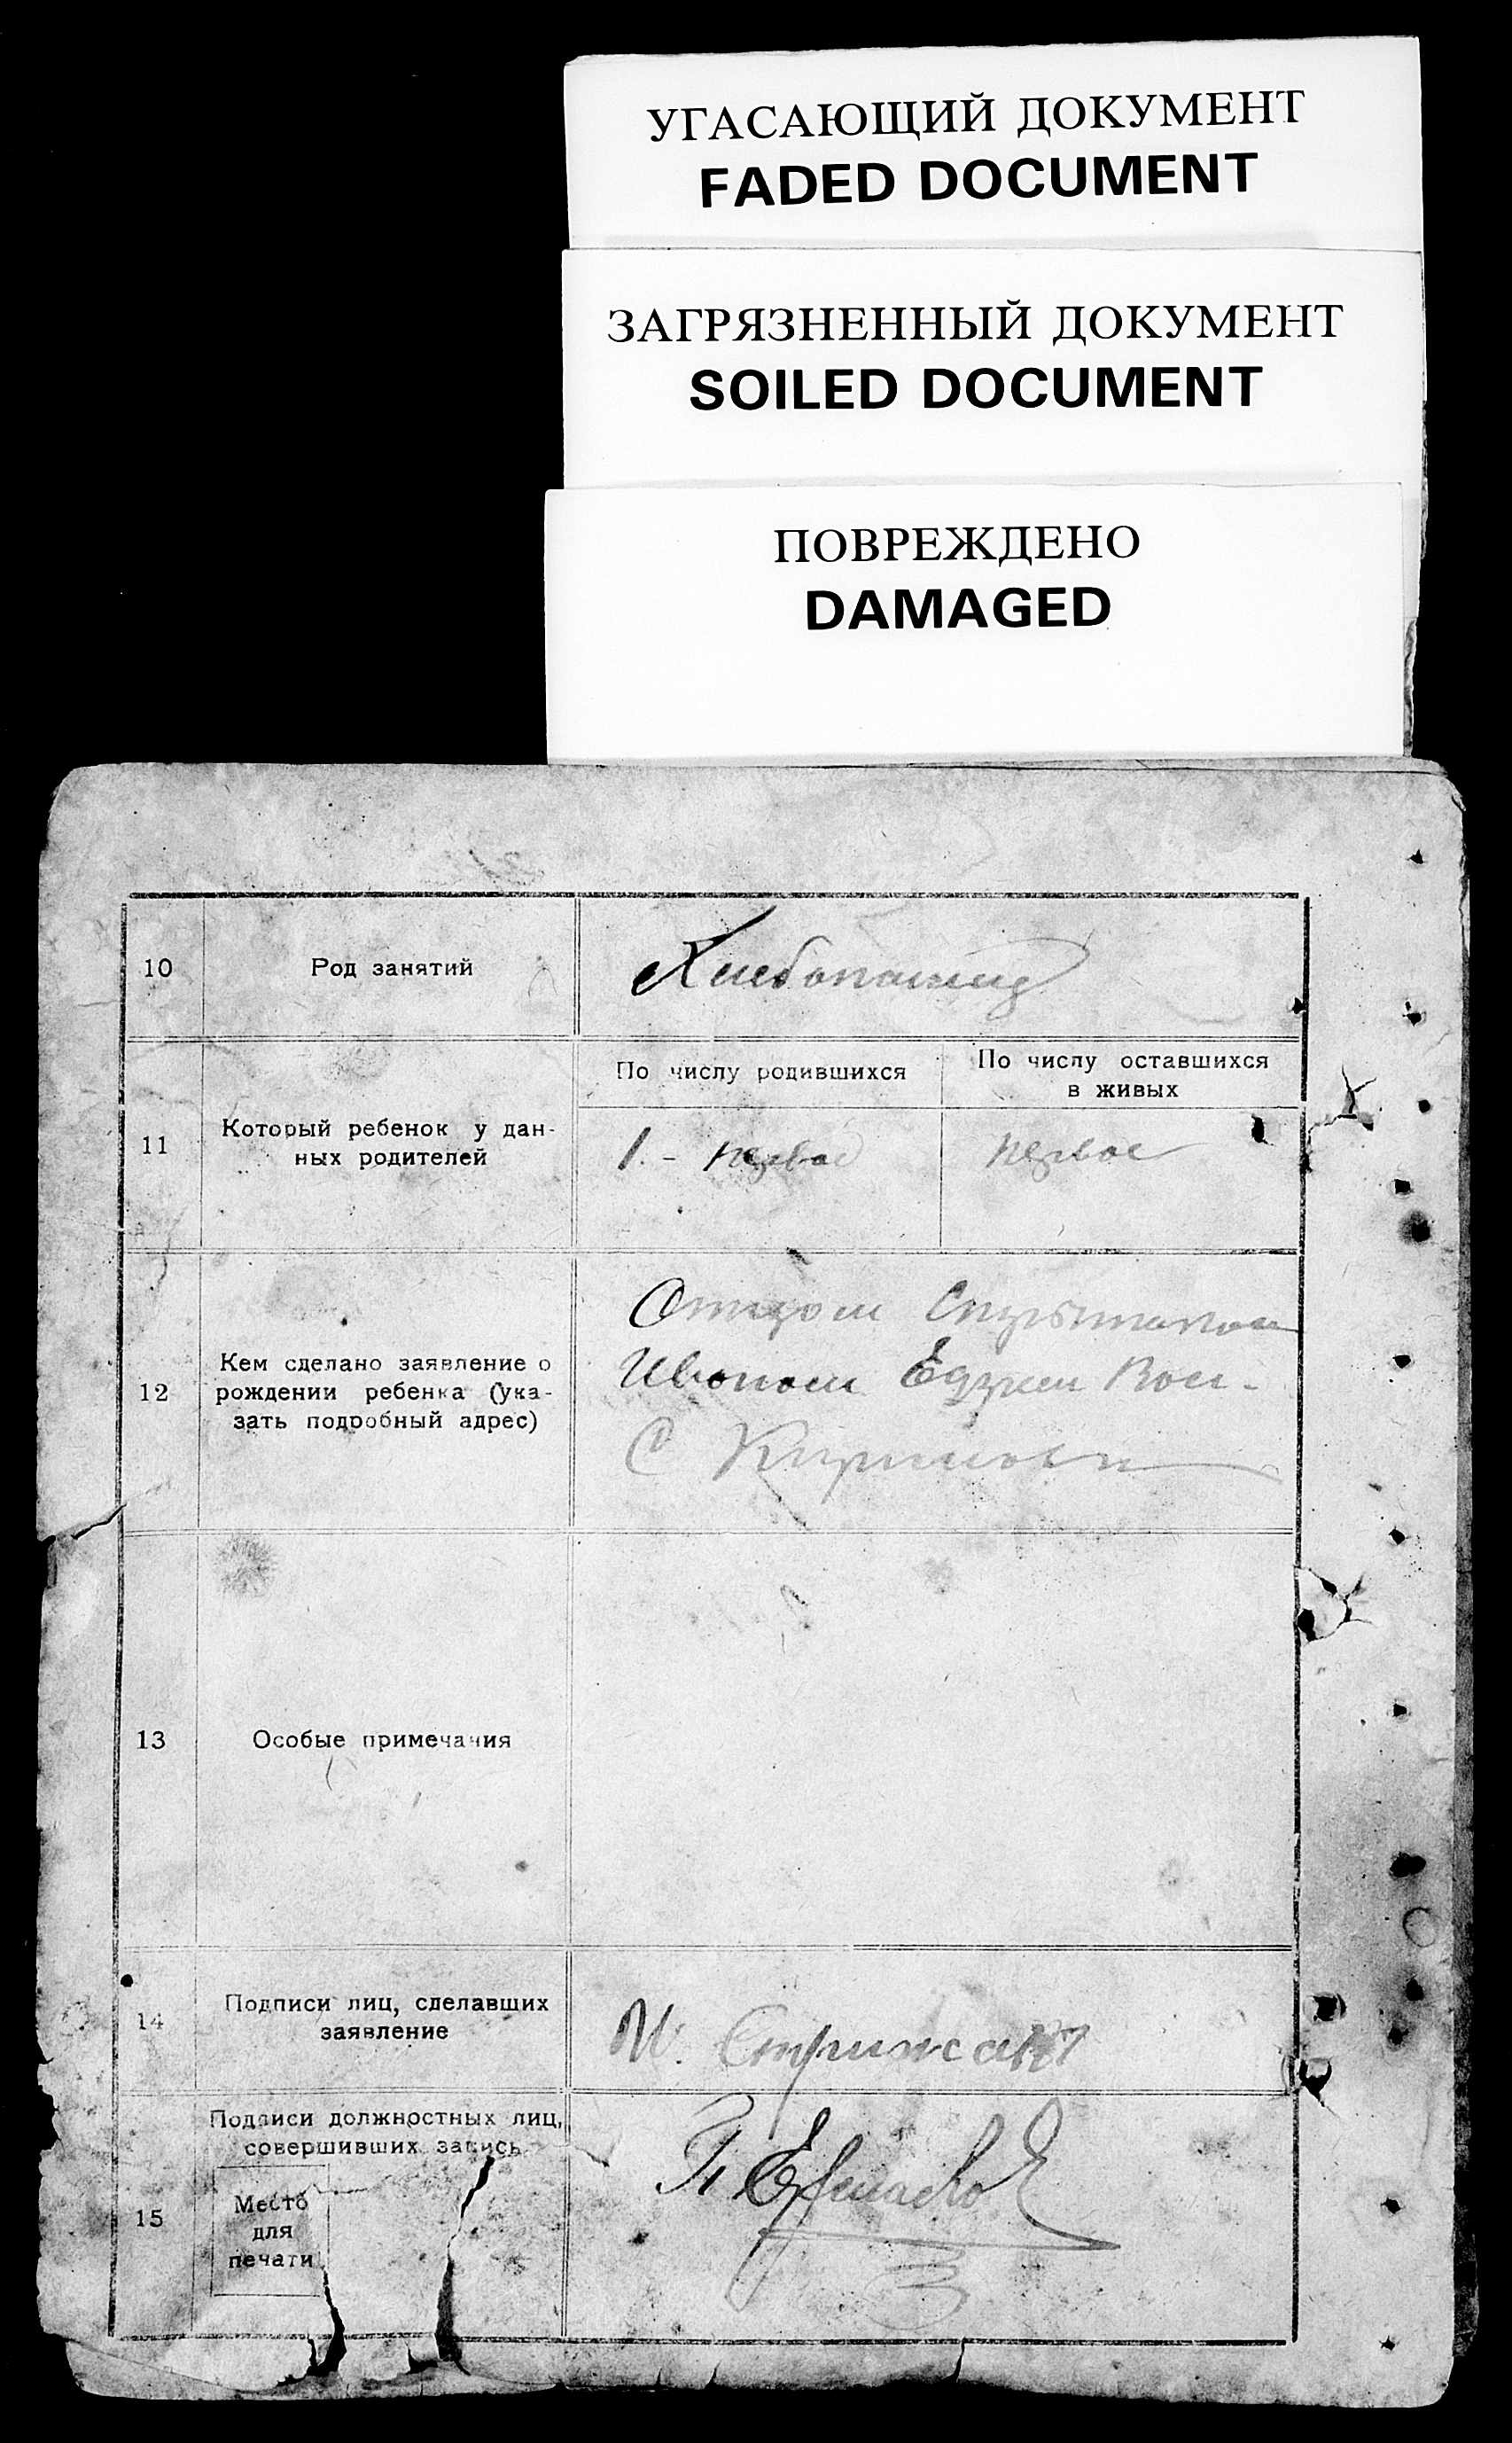 УГАСАЮЩИЙ ДОКУМЕНТ
FADED DOCUMENT
ЗАГРЯЗНЕННЫЙ ДОКУМЕНТ
SOILED DOCUMENT
ПОВРЕЖДЕНО
DAMAGED
10
Род занятий
Хлебопашец
11
Который ребенок у дан-
ных родителей
По числу родившихся
1. - первое
По числу оставшихся
в живых
первое
12
Кем сделано заявление о
рождении ребенка (ука-
зать подробный адрес)
Отцом
Иваном
С
13
Особые примечания
14
Подписи лиц, сделавших
заявление
И.
15
Подписи должностных лиц,
совершивших запись
Место
для
печати